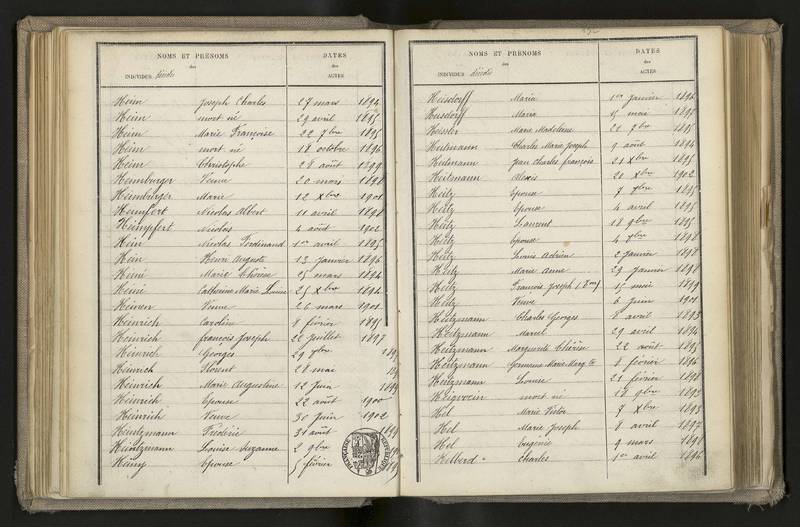 NOMS ET PRÉNOMS
des
INDIVIDUS décédés
DATES
des
ACTES
Heim Joseph Charles 27 mars 1894
Heim mort né 29 avril 1895
Heim Marie Françoise 22 7bre 1895
Heim mort né 18 octobre 1896
Heim Christophe 28 août 1899
Heimburger Veuve 20 mars 1898
Heimburger Marie 12 Xbre 1901
Heimfert Nicolas Albert 11 avril 1898
Heimpfert Nicolas 4 août 1902
Hein Nicolas Ferdinand 1er avril 1895
Hein Pierre Auguste 13 janvier 1896
Heiné Marie Thérèse 25 mars 1894
Heiné Catherine Marie Louise 25 Xbre 1894
Heinen Veuve 26 mars 1901
Heinrich Caroline 8 février 1895
Heinrich françois Joseph 22 juillet 1897
Heinrich Georges 29 7bre
Heinrich Florent 28 mai
Heinrich Marie Augustine 12 Juin 1899
Heinrich Epouse 22 août 1900
Heinrich Veuve 30 Juin 1902
Heintzmann Frédéric 31 août
Heintzmann Louise Suzanne 2 9bre
Heinz Epouse 5 février
NOMS ET PRÉNOMS
des
INDIVIDUS décédés
DATES
des
ACTES
Heisdorff Maria 1er janvier 1896
Heisdorff Maria 5 mai 1895
Heissler Marie Madeleine 21 7bre 1895
Heitmann Charles Marie Joseph 9 août 1894
Heitmann Jean Charles françois 21 Xbre 1895
Heitmann Alexis 20 Xbre 1902
Heitz Epouse 7 Xbre 1895
Heitz Epouse 4 avril 1895
Heitz Laurent 18 9bre 1895
Heitz Epouse 4 7bre 1898
Heitz Louis Adrien 2 janvier 1898
Heitz Marie Anne 29 janvier 1898
Heitz François Joseph 15 mai 1899
Heitz Veuve 6 juin 1901
Heitzmann Charles Georges 8 avril 1893
Heitzmann Marcel 29 avril 1894
Heitzmann Marguerite Thérèse 22 août 1895
Heitzmann Germaine Marie Marg.te 8 février 1896
Heitzmann Louise 21 février 1898
mort né 17 9bre 1895
Hel Marie Victor 7 Xbre 1893
Hel Marie Joseph 8 avril 1897
Hel Eugénie 9 mars 1898
Helbord Charles 1er avril 1896
RÉPUBLIQUE FRANÇAISE